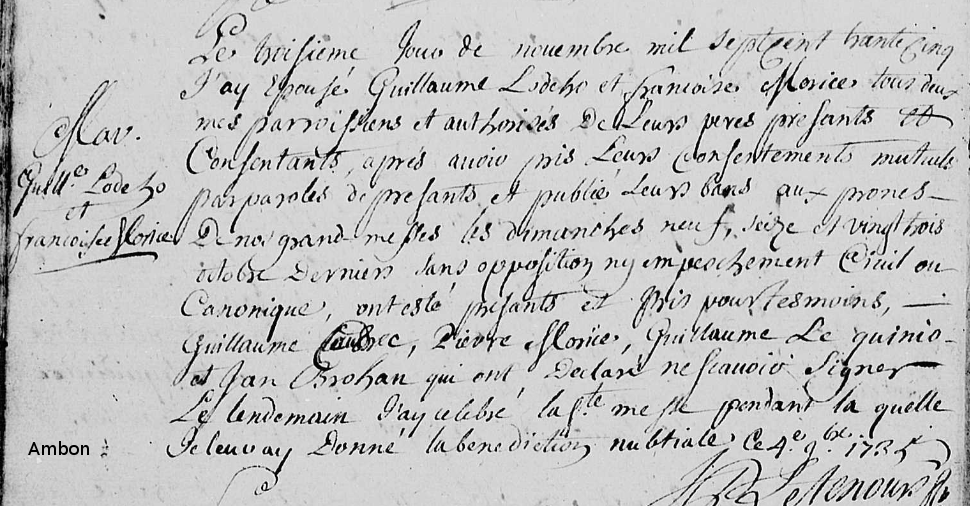 Le troisieme Jour de novembre mil Septcent trante Cinq
J'ay Epousé Guillaume Lodeho et françoise Morice tous deux
mes parroissiens et authorisés De Leurs peres presants et
Consentants, aprés avoir pris Leurs Consentements mutuels
par paroles de presants et publié Leurs bans aux prones
De nos grand messes les dimanches neuf, seize et vingt trois
octobre Derniers sans opposition ny empeschement Civil ou
Canonique, ont esté presants et pris pour tesmoins,
Guillaume, Pierre Morice, Guillaume Le quinio
et Jan Brohan qui ont Declaré ne scavoir Signer
Le lendemain J'ay celebré la Ste messe pendant la quelle
Je leur ay Donné la benediction nubtiale Ce 4e 9bre 1735
Mar.
Guille Lodeho
et
françoise Morice
Ambon